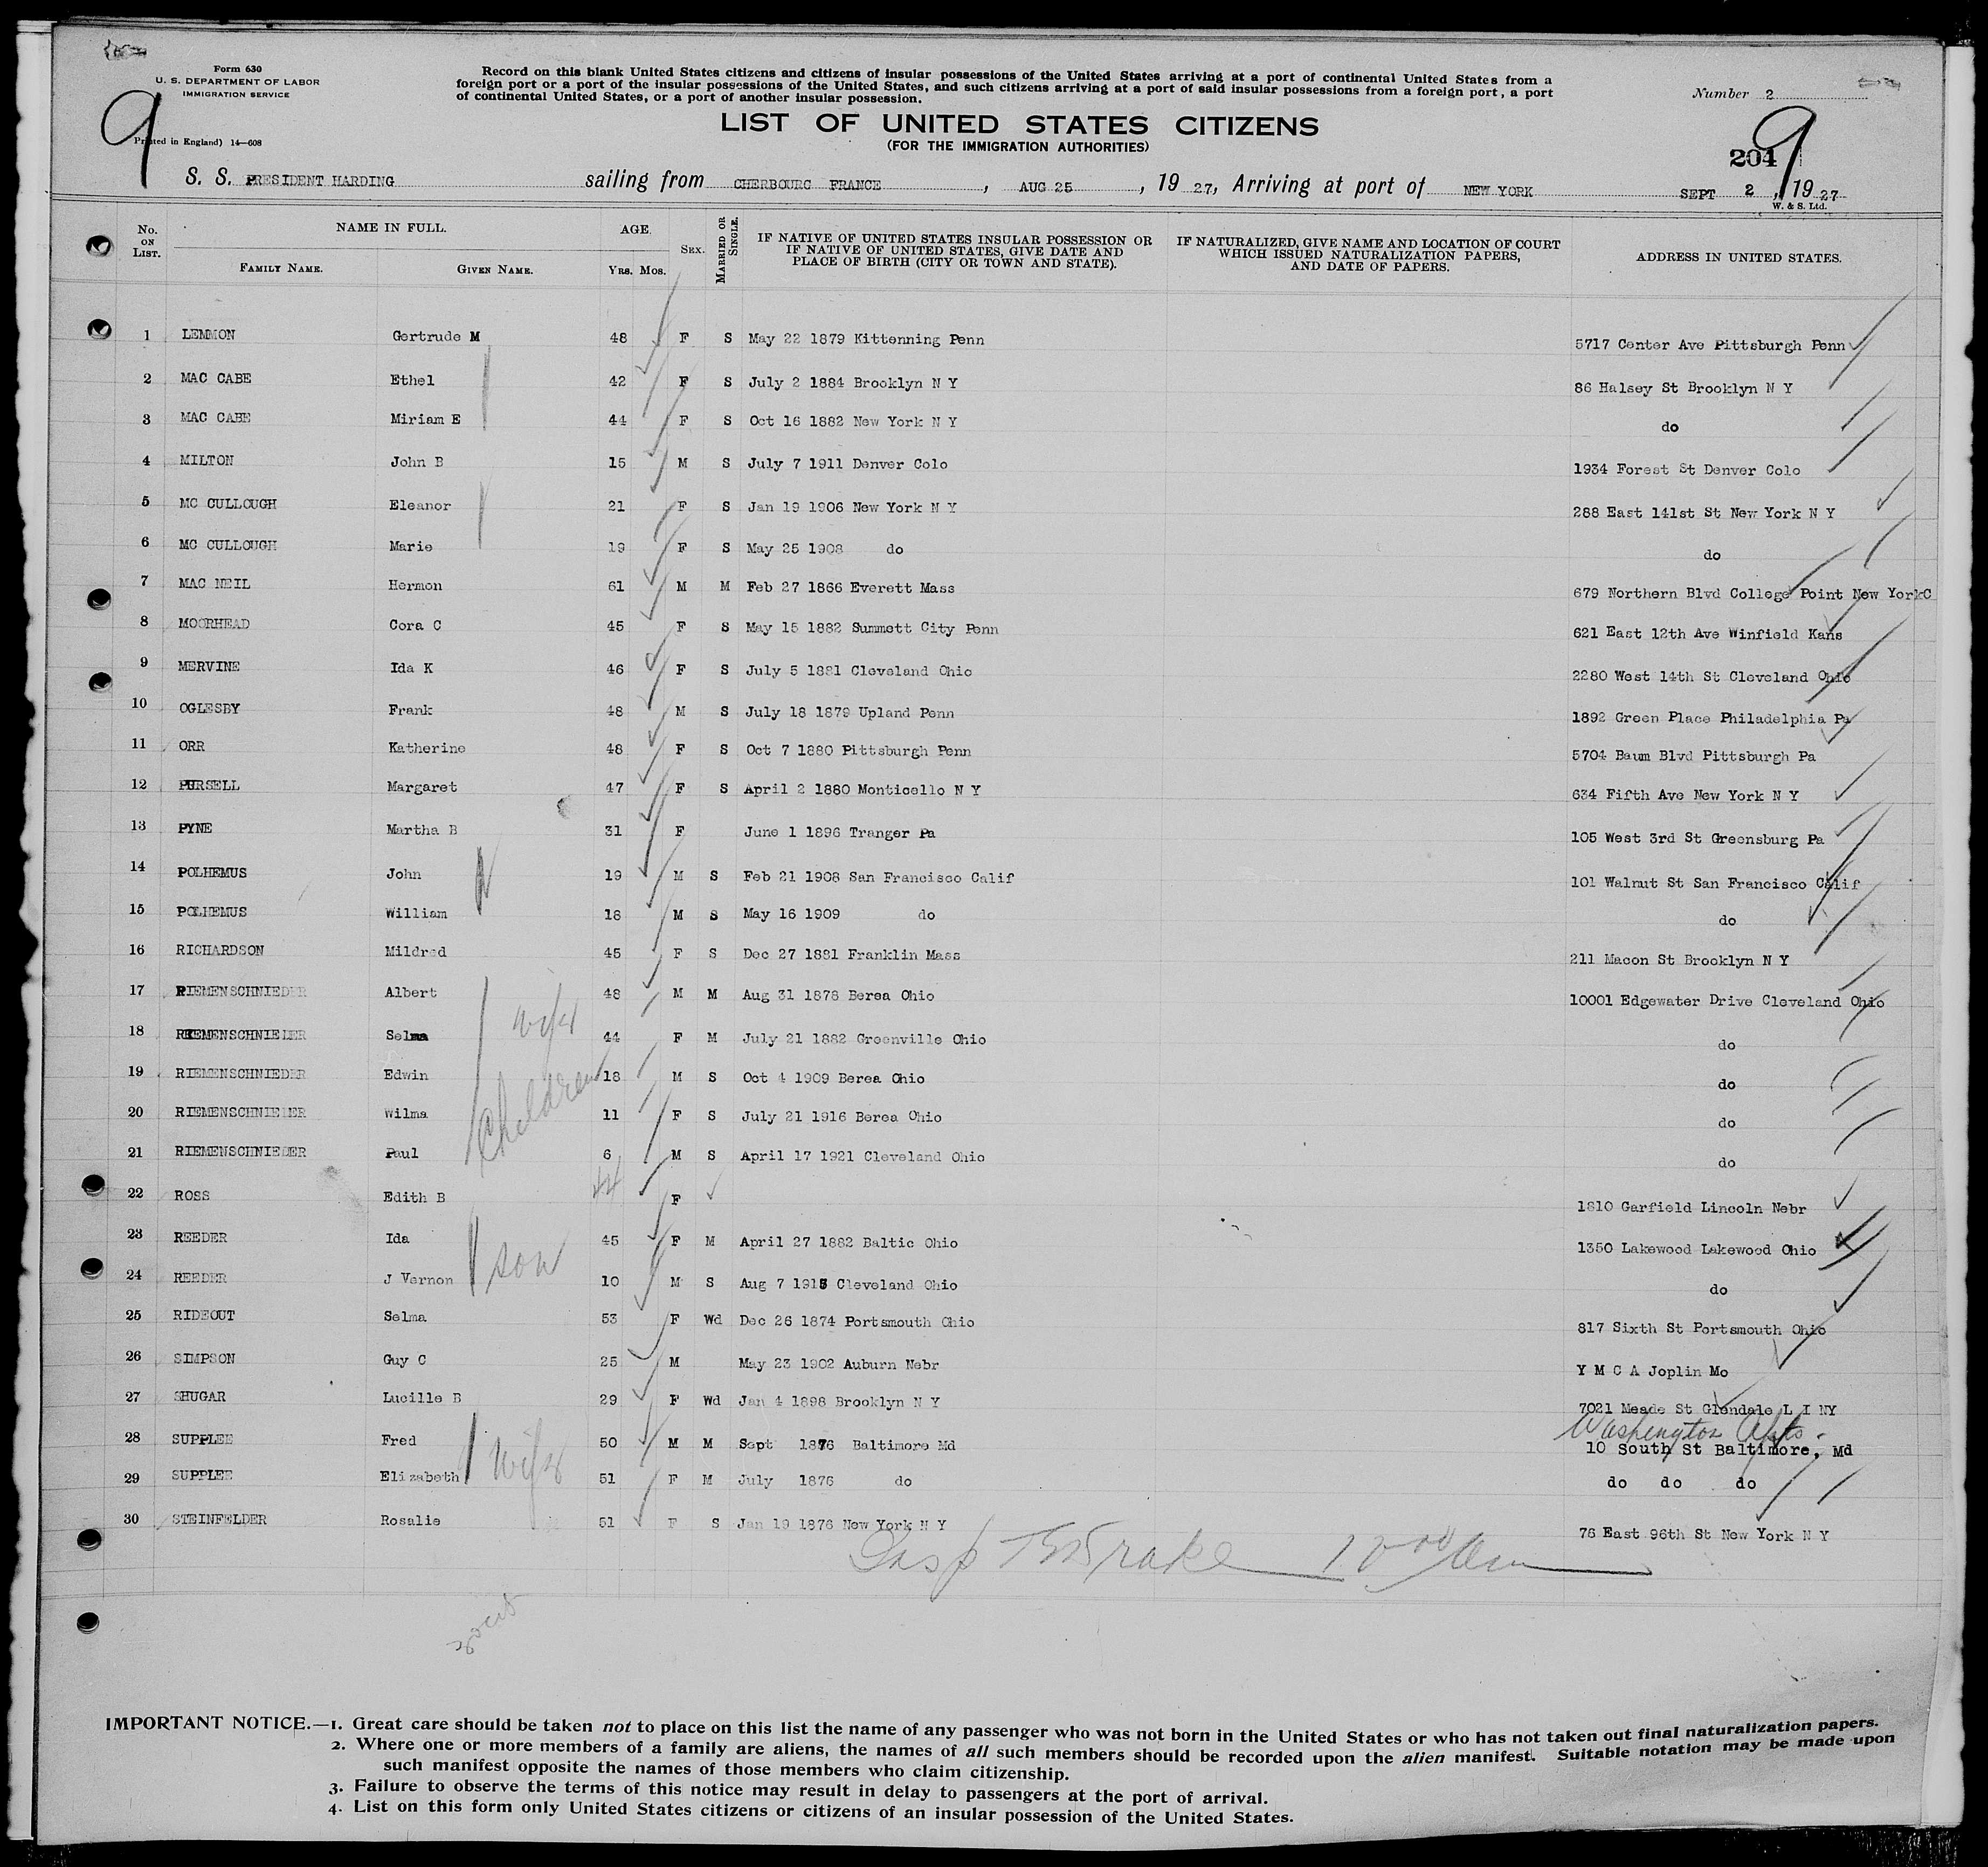 Form 630
U. S. DEPARTMENT OF LABOR
IMMIGRATION SERVICE
Printed in England) 14—608
9
Record on this blank United States citizens and citizens of insular possessions of the United States arriving at a port of continental United States from a
foreign port or a port of the insular possessions of the United States, and such citizens arriving at a port of said insular possessions from a foreign port, a port
of continental United States, or a port of another insular possession.
Number 2
LIST OF UNITED STATES CITIZENS
(FOR THE IMMIGRATION AUTHORITIES)
204
9
S. S. PRESIDENT HARDING sailing from CHERBOURG FRANCE, AUG 25, 1927, Arriving at port of NEW YORK SEPT 2, 1927
W. & S. Ltd.
No. ON LIST. NAME IN FULL. FAMILY NAME. GIVEN NAME. AGE. YRS. MOS. SEX. MARRIED OR SINGLE. IF NATIVE OF UNITED STATES INSULAR POSSESSION OR IF NATIVE OF UNITED STATES, GIVE DATE AND PLACE OF BIRTH (CITY OR TOWN AND STATE). IF NATURALIZED, GIVE NAME AND LOCATION OF COURT WHICH ISSUED NATURALIZATION PAPERS, AND DATE OF PAPERS. ADDRESS IN UNITED STATES.
1 LEMMON Gertrude M 48 F S May 22 1879 Kittenning Penn 5717 Center Ave Pittsburgh Penn
2 MAC CABE Ethel 42 F S July 2 1884 Brooklyn N Y 86 Halsey St Brooklyn N Y
3 MAC CABE Miriam E 44 F S Oct 16 1882 New York N Y do
4 MILTON John B 15 M S July 7 1911 Denver Colo 1934 Forest St Denver Colo
5 MC CULLOUGH Eleanor 21 F S Jan 19 1906 New York N Y 288 East 141st St New York N Y
6 MC CULLOUGH Marie 19 F S May 25 1908 do do
7 MAC NEIL Hermon 61 M M Feb 27 1866 Everett Mass 679 Northern Blvd College Point New YorkC
8 MOORHEAD Cora C 45 F S May 15 1882 Summett City Penn 621 East 12th Ave Winfield Kans
9 MERVINE Ida K 46 F S July 5 1881 Cleveland Ohio 2280 West 14th St Cleveland Ohio
10 OGLESBY Frank 48 M S July 18 1879 Upland Penn 1892 Green Place Philadelphia Pa
11 ORR Katherine 48 F S Oct 7 1880 Pittsburgh Penn 5704 Baum Blvd Pittsburgh Pa
12 PURSELL Margaret 47 F S April 2 1880 Monticello N Y 634 Fifth Ave New York N Y
13 PYNE Martha B 31 F June 1 1896 Tranger Pa 105 West 3rd St Greensburg Pa
14 POLHEMUS John 19 M S Feb 21 1908 San Francisco Calif 101 Walnut St San Francisco Calif
15 POLHEMUS William 18 M S May 16 1909 do do
16 RICHARDSON Mildred 45 F S Dec 27 1881 Franklin Mass 211 Macon St Brooklyn N Y
17 RIEMENSCHNIEDER Albert 48 M M Aug 31 1878 Berea Ohio 10001 Edgewater Drive Cleveland Ohio
18 RIEMENSCHNIEDER Selma wife 44 F M July 21 1882 Greenville Ohio do
19 RIEMENSCHNIEDER Edwin Children 18 M S Oct 4 1909 Berea Ohio do
20 RIEMENSCHNIEDER Wilma 11 F S July 21 1916 Berea Ohio do
21 RIEMENSCHNIEDER Paul 6 M S April 17 1921 Cleveland Ohio do
22 ROSS Edith B 44 F 1810 Garfield Lincoln Nebr
23 REEDER Ida 45 F M April 27 1882 Baltic Ohio 1350 Lakewood Lakewood Ohio
24 REEDER J Vernon son 10 M S Aug 7 Cleveland Ohio do
25 RIDEOUT Selma 53 F Wd Dec 26 1874 Portsmouth Ohio 817 Sixth St Portsmouth Ohio
26 SIMPSON Guy C 25 M May 23 1902 Auburn Nebr Y M C A Joplin Mo
27 SHUGAR Lucille B 29 F Wd Jan 4 1898 Brooklyn N Y 7021 Meade St Glendale L I NY
Washington Apts.
28 SUPPLEE Fred 50 M M Sept 1876 Baltimore Md 10 South St Baltimore, Md
29 SUPPLEE Elizabeth wife 51 F M July 1876 do do do do
30 STEINFELDER Rosalie 51 F S Jan 19 1876 New York N Y 76 East 96th St New York N Y
Drake
IMPORTANT NOTICE.—1. Great care should be taken not to place on this list the name of any passenger who was not born in the United States or who has not taken out final naturalization papers.
2. Where one or more members of a family are aliens, the names of all such members should be recorded upon the alien manifest. Suitable notation may be made upon
such manifest opposite the names of those members who claim citizenship.
3. Failure to observe the terms of this notice may result in delay to passengers at the port of arrival.
4. List on this form only United States citizens or citizens of an insular possession of the United States.